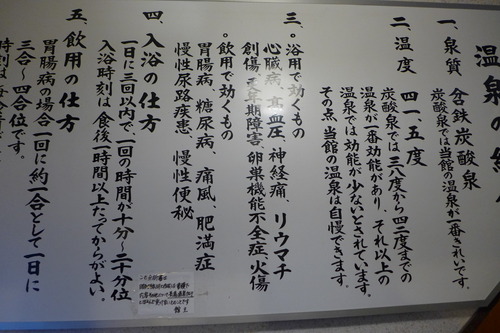 温泉の
一、泉質 含鉄炭酸泉
炭酸泉では当館の温泉が一番きれいです。
二、温度 四一・五度
炭酸泉では三八度から四二度までの
温泉が一番効能があり、それ以上の
温泉では効能が少ないとされています。
その点、当館の温泉は自慢できます。
三、
○浴用で効くもの
心臓病、高血圧、神経痛、リウマチ
創傷、更年期障害、卵巣機能不全症、火傷
○飲用で効くもの
胃腸病、糖尿病、痛風、肥満症
慢性尿路疾患、慢性便秘
四、入浴の仕方
一日に三回以内で、一回の時間が十分～二十分位
入浴時刻は食後一時間以上たってからがよい。
五、飲用の仕方
胃腸病の場合一回に約一合として一日に
三合～四合位です。
時刻は
館主